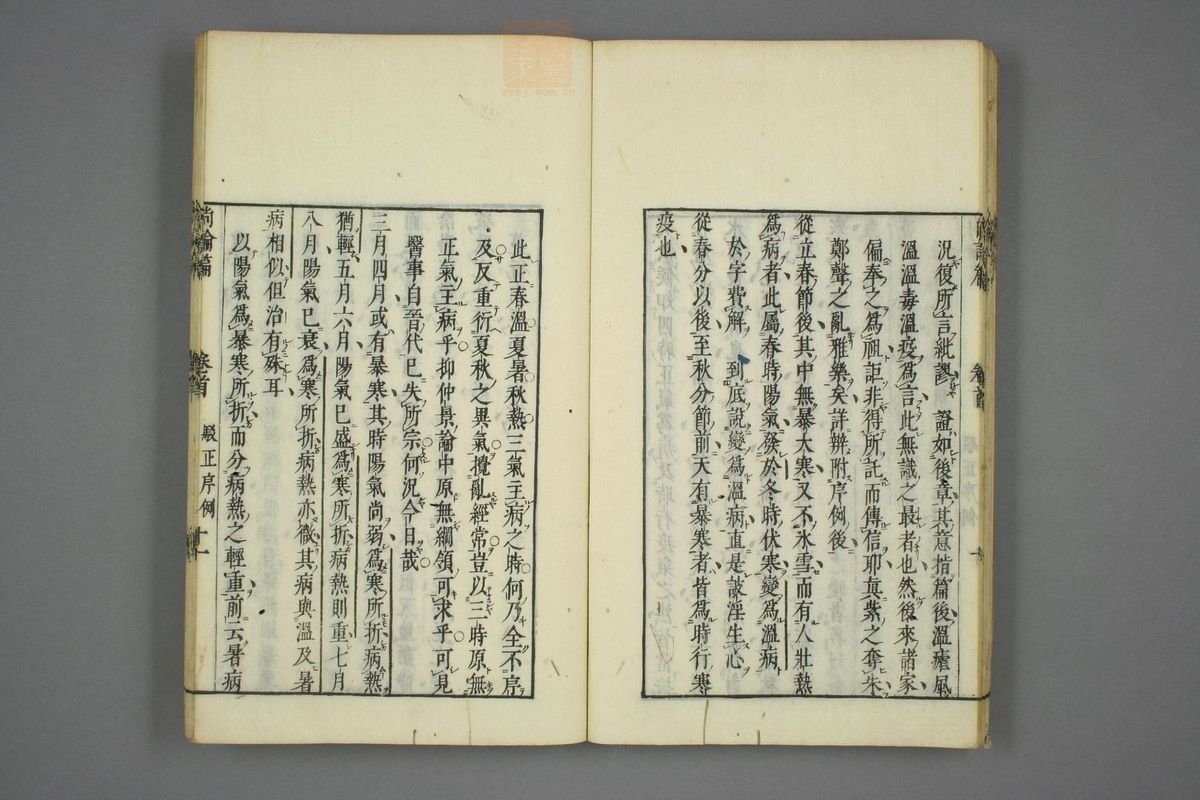 況復所言紕謬證如後章其意指篇後溫瘧風
溫溫毒溫疫爲言此無識之最者也然後來諸家
偏奉之爲祖詎非得所託而傳信耶眞紫之奪朱
鄭聲之亂雅樂矣詳辨附序例後
從立春節後其中無暴大寒又不冰雪而有人壯熱
爲病者此屬春時陽氣發於冬時伏寒變爲溫病
於字費解到底說變爲溫病直是詖淫生心
從春分以後至秋分節前天有暴寒者皆爲時行寒
疫也
此正春溫夏暑秋熱三氣主病之時何乃全不序
及反重衍夏秋之異氣攪亂經常豈以三時原無
正氣主病乎抑仲景論中原無綱領可求乎可見
醫事自晉代已失所宗何況今日哉
三月四月或有暴寒其時陽氣尚弱爲寒所折病熱
猶輕五月六月陽氣已盛爲寒所折病熱則重七月
八月陽氣已衰爲寒所折病熱亦微其病與溫及暑
病相似但治有殊耳
以陽氣爲暴寒所折而分病熱之輕重前云暑病
尚論篇 卷首 駁正序例 十一
zysj.com.cn